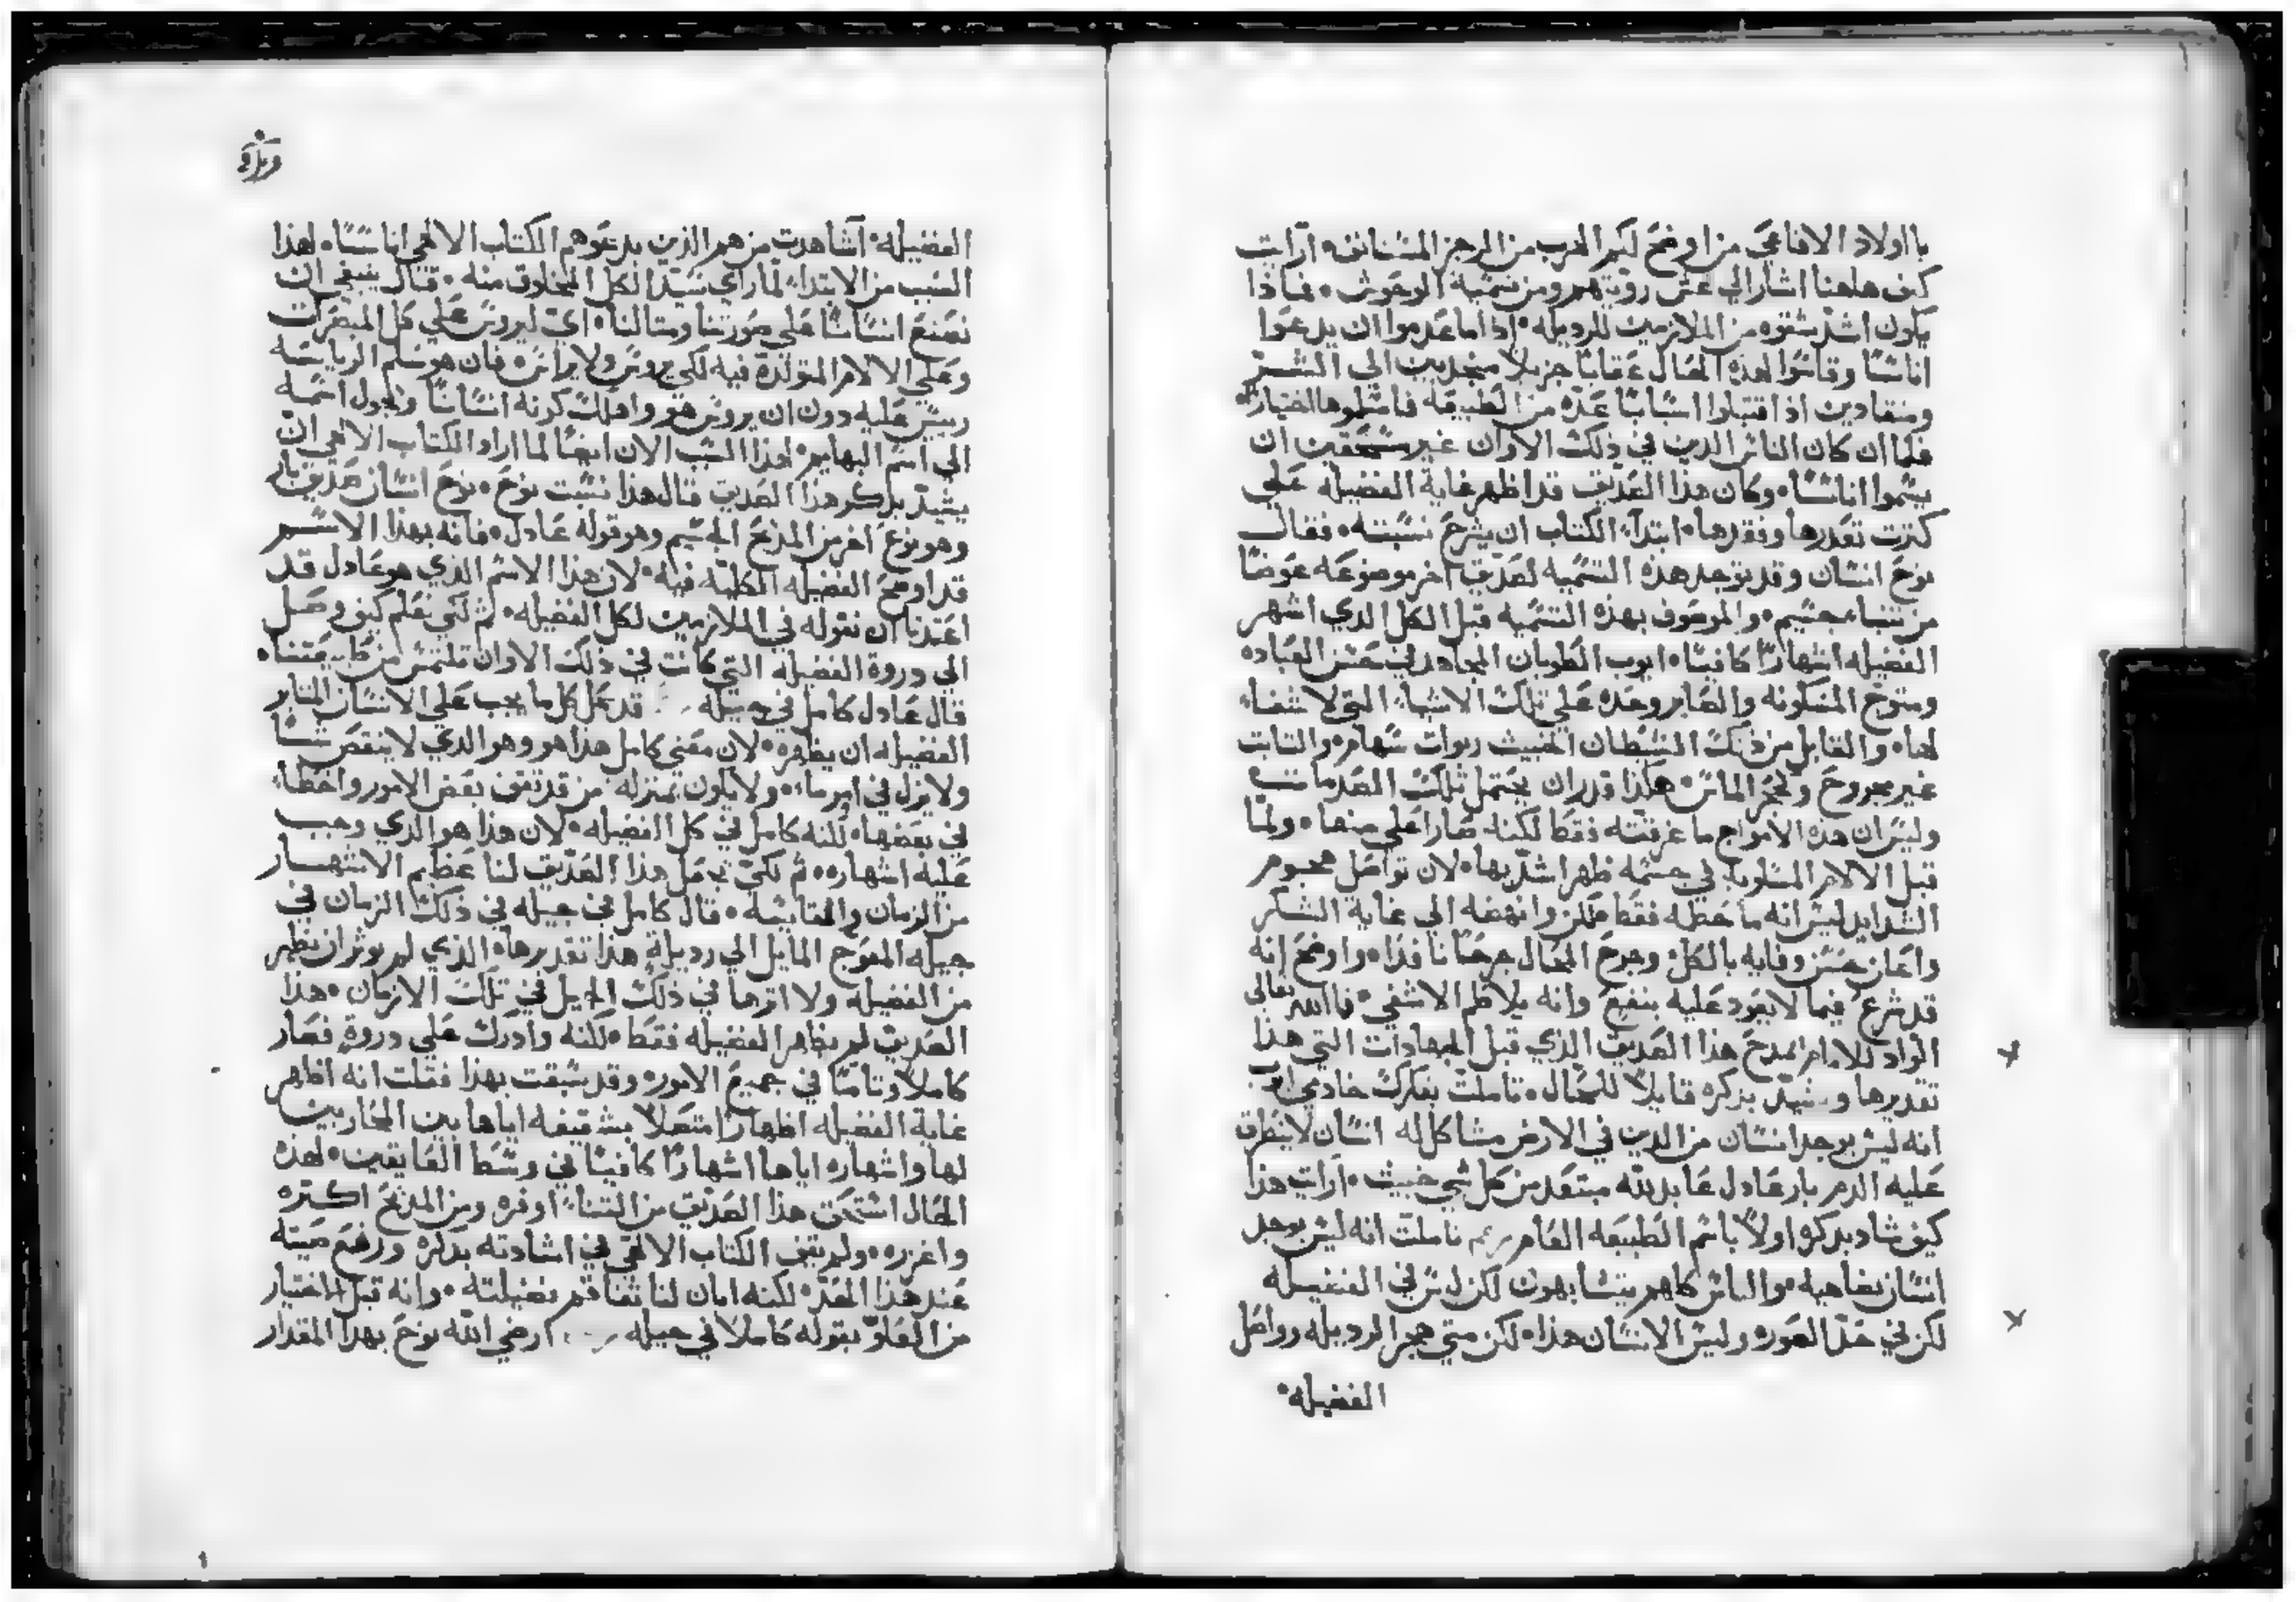 يا اولاد الافاعي من اوضح لكم الهرب من الرجز المستانف• ارايت
كيف هاهنا اشار الي غش رويتهم ومن تسمية الوحوش• فماذا
يكون اشد شقوه من الملازمين للرديله• اذا ما عدموا ان يدعوا
اناسًا وقاسوا لهذه الحال عقابًا جزيلًا منجدبين الي الشر
ومنقادين اذا اقتبلوا اسبابًا عده من الطبيعه فاسلموها اختيارًا•
فلما ان كان الناس الدين في ذلك الاوان غير مستحقين ان
يسموا اناسًا• وكان هذا الصديق قد اظهر غاية الفضيله علي
كثرت تعدرها وفقرها• ابتدآء الكتاب ان يشرح نسبته• فقال
نوح انسان وقد توجد هذه التسميه لصديق اخر موضوعه عوضًا
من ثناء جسيم• والموصوف بهذه التسميه قبل الكل الدي اشهر
الفضيله اشهارًا كافيًا• ايوب الطوبان المجاهد في حسن العباده
ومتوج المسكونه والصابر وحده علي تلك الاشياء التي لا شفاء
لها• والقابل من ذلك الشيطان الخبيث ربوات سهام• والتابت
غير مجروح وكحجر الماس• هكذا قدر ان يحتمل تلك الصدمات
وليس ان هده الامواج ما غرقته فقط لكنه صار اعلي منها• ولما
قبل الالام المسكونه في جسمه ظهر اشد بها• لان تواصل هجوم
الشدايد ليس انه ما حطه فقط لكن وانهضه الي غاية الشكر
واعان حسن وفايه بالكل• وجرح المحال جرحًا نافدًا• واوضح انه
قد شرع فيما لا يعود عليه بنفع وانه يلاطم الاشفي• فاالله تعالي
الواد للانام يمدح هذا الصديق الذي قبل الجهادات التي هذا
تقديرها ويشيد بذكره قايلًا للمحال• تاملت بفكرك خادمي ايوب
انه ليس يوجد انسان من الدين في الارض مشاكل له انسان لا يتطرق
عليه الدم بار عادل عابد لله مبتعد من كل شي خبيث• ارايت هذا
كيف شاد بدكره اولًا باسم الطبيعه العام تاملت انه ليس يوجد
انسان يضاهيه• والناس كلهم يتشابهون لكن ليس في الفضيله
لكن في حد الصوره وليس الانسان هذا• لكن متي هجر الرديله وواصل
الفضيله•
الفضيله• آشاهدت من هم الذين يدعوهم الكتاب الالهي اناسًا• لهذا
السبب من الابتداء لما راي سيد الكل المخلوق منه• قال ينبغي ان
نصنع انسانًا علي صورتنا ومثالنا• اي ليروس علي كل المبصرات
وعلي الالام المتولدة فيه لكي يروس ولا يراس• فان هو سلم الرياسه
ورييس عليه دون ان يروس هو• واهلك كونه انسانًا وتحول اسمه
الي اسم البهايم• لهذا السبب الان ايضًا لما اراد الكتاب الالهي ان
يشيد بدكر هذا الصديق قال هذا نسبت نوح• نوح انسان صديق بار
وهو نوع اخر من المديح الجسيم وهو قوله عادل• فانه بهذا الاسم
قد اوضح الفضيله الكليه فيه• لان هذا الاسم الذي هو عادل قد
اعتدنا ان نقوله في الملازمين لكل الفضيله• ثم لكي نعلم كيف وصل
الي دروة الفضيله التي كانت في ذلك الاوان تلتمس من طبيعتنا•
قال عادل كامل في جيله قد عمل كل ما يجب علي الانسان المتابر
الفضيله ان يظهره• لان معني كامل هذا هو وهو الدي لا ينقص شيًا
ولا يزل في امر ما• ولا يكون بمنزله من قد تقف بعض الامور واخطاء
في بعضها• لكنه كامل في كل الفضيله• لان هذا هو الدي وجب
عليه اشهاره• ثم لكي يجعل هذا الصديق لنا عظيم الاشتهار
من الزمان والمقايسه• قال كامل في جيله في ذلك الزمان في
جيله المعوج المايل الي رديلة هذا تقديرها• الذي لم يوثر ان يظهر
من الفضيله ولا اثرها في ذلك الجيل في تلك الازمان• هذا
الصديق لم يظهر الفضيله فقط• لكنه وادرك علي دروة• فصار
كاملًا وتامًا في جميع الامور• وقد سبقت بهذا فقلت انه اظهر
غاية الفضيله اظهارًا متصلًا بتثقيفه اياها بين المحاربين
لها واشهاره اياها اشهارًا كافيًا في وسط العايقين• لهذه
الحال استحق هذا الصديق من الثناء اوفره ومن المديح اكثره
واغزره• ولم يقف الكتاب الالهي في اشادته بدكره ورفع صيته
عند هذا الحد• لكنه ابان لنا تفاقم بفضيلته• وانه قبل الاختيار
من العلو بقوله كاملًا في جيله ارضي الله نوح بهدا المقدار